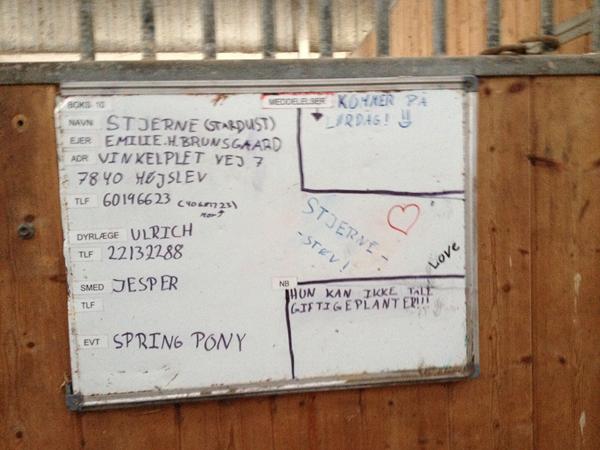 BOKS 10
NAVN STJERNE (STARDUST)
EJER EMILIE.H.BRUNSGAARD
ADR VINKELPLET VEJ 7
7840 HØJSLEV
TLF 60196623
DYRLÆGE ULRICH
TLF 22132288
SMED JESPER
TLF
EVT SPRING PONY
MEDDELELSER
KOMMER PÅ
LØRDAG!
STJERNE-
-STØV!
Love
NB
HUN KAN IKKE TÅLE
GIFTIGEPLANTER!!!